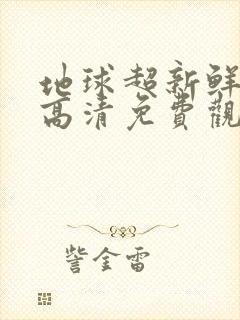 地球超新鲜
高清免費觀
訾金雷